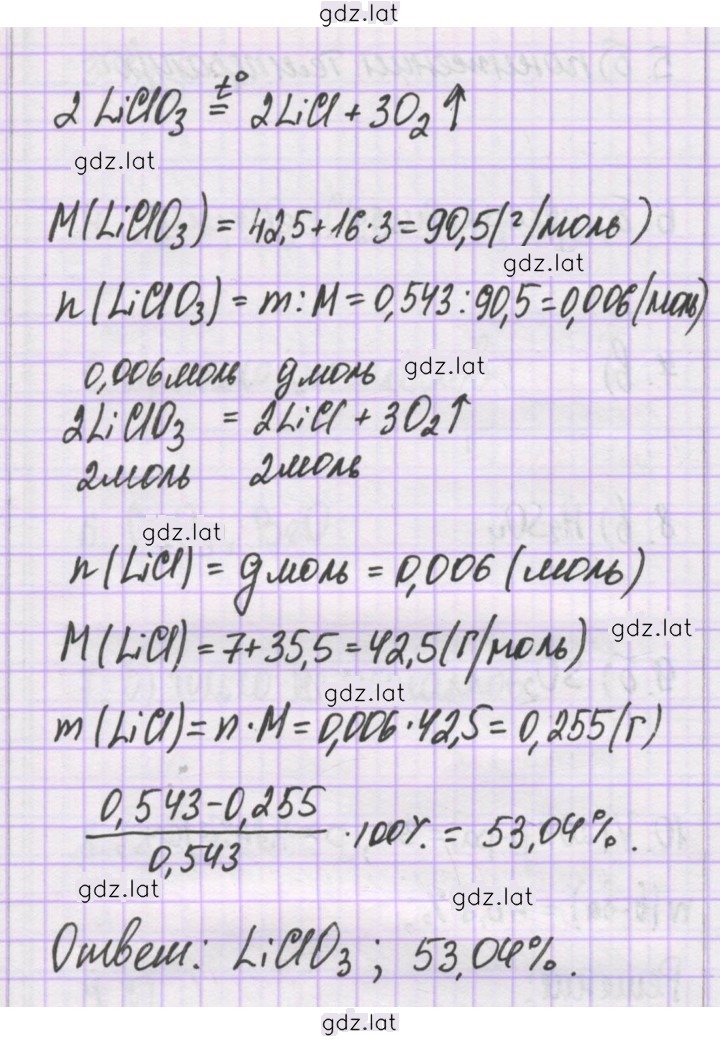 gdz.lat
2 LiClO₃ t°= 2LiCl + 3O₂↑
gdz.lat
M(LiClO₃) = 42,5+16·3 = 90,5(г/моль)
gdz.lat
n(LiClO₃) = m:M = 0,543:90,5 = 0,006(моль)
0,006моль gмоль gdz.lat
2LiClO₃ = 2LiCl + 3O₂↑
2моль 2моль
gdz.lat
n(LiCl) = gмоль = 0,006 (моль)
gdz.lat
M(LiCl) = 7+35,5 = 42,5(г/моль)
gdz.lat
m(LiCl) = n·M = 0,006·42,5 = 0,255(г)
0,543-0,255
·100% = 53,04%.
0,543
gdz.lat
gdz.lat
Ответ: LiClO₃; 53,04%.
gdz.lat